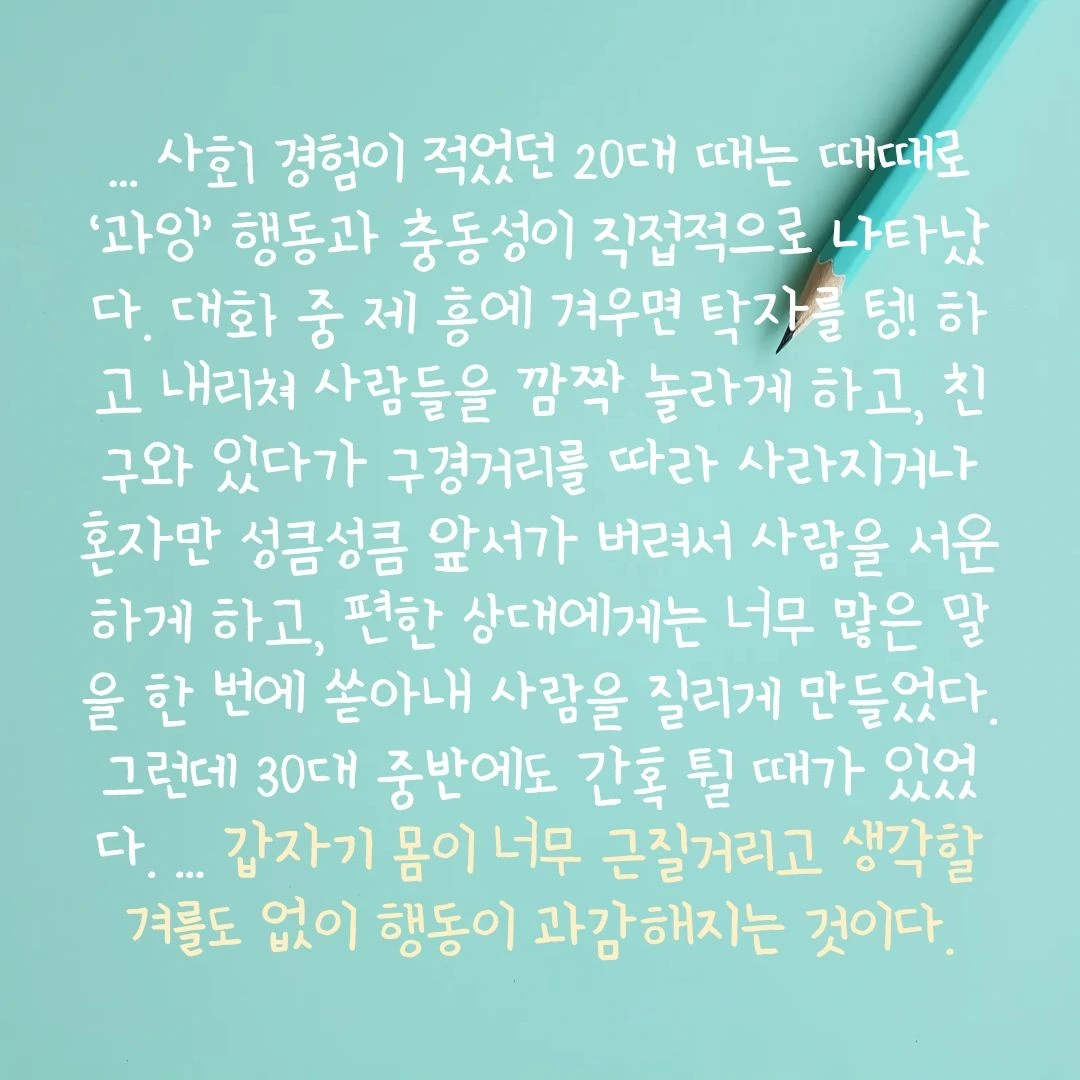 ... 사회 경험이 적었던 20대 때는 때때로
‘과잉’ 행동과 충동성이 직접적으로 나타났
다. 대화 중 제 흥에 겨우면 탁자를 텅! 하
고 내리쳐 사람들을 깜짝 놀라게 하고, 친
구와 있다가 구경거리를 따라 사라지거나
혼자만 성큼성큼 앞서가 버려서 사람을 서운
하게 하고, 편한 상대에게는 너무 많은 말
을 한 번에 쏟아내 사람을 질리게 만들었다.
그런데 30대 중반에도 간혹 튈 때가 있었
다. ... 갑자기 몸이 너무 근질거리고 생각할
겨를도 없이 행동이 과감해지는 것이다.